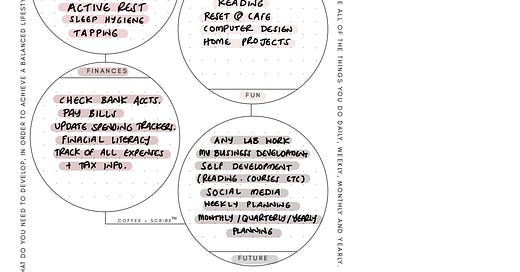 ACTIVE REST
SLEEP HYGIENE
TAPPING
READING
RESET @ CAFE
COMPUTER DESIGN
HOME PROJECTS
FINANCES
FUN
CHECK BANK ACCTS.
PAY BILLS
UPDATE SPENDING TRACKERS.
FINACIAL LITERACY
TRACK OF ALL EXPENSES
+ TAX INFO.
ANY LAB WORK
MY BUSINESS DEVELOPMENT
SELF DEVELOPMENT
(READING. COURSES ETC)
SOCIAL MEDIA
WEEKLY PLANNING
MONTHLY/QUARTERLY/YEARLY
PLANNING
FUTURE
COFFEE + SCRIBE™
DO YOU NEED TO DEVELOP, IN ORDER TO ACHIEVE A BALANCED
ALL OF THE THINGS YOU DO DAILY, WEEKLY, MONTHLY AND YEARLY.